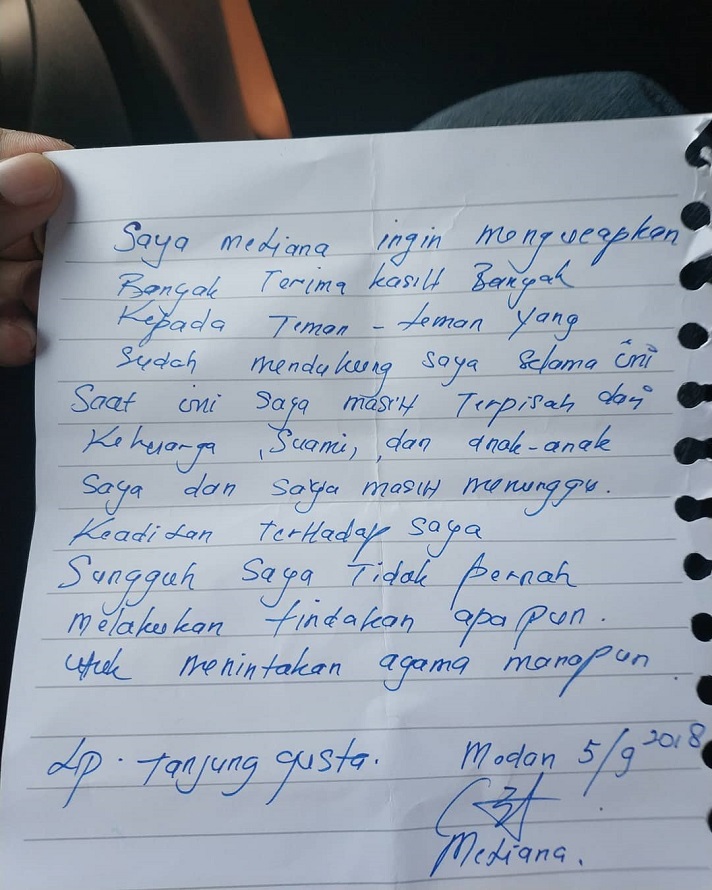 Saya mediana ingin mengucapkan
Banyak Terima kasiH Banyak
Kepada Teman - teman yang
Sudah mendukung saya selama ini
Saat ini saya masiH Terpisah dari
Keluarga , Suami, dan anak-anak
Saya dan saya masiH menunggu.
Keadilan terHadap saya
Sungguh Saya Tidak pernah
melakukan tindakan apapun.
utuk menintakan agama manapun.
Lp. Tanjung gusta. Medan 5/9 2018
Meliana.